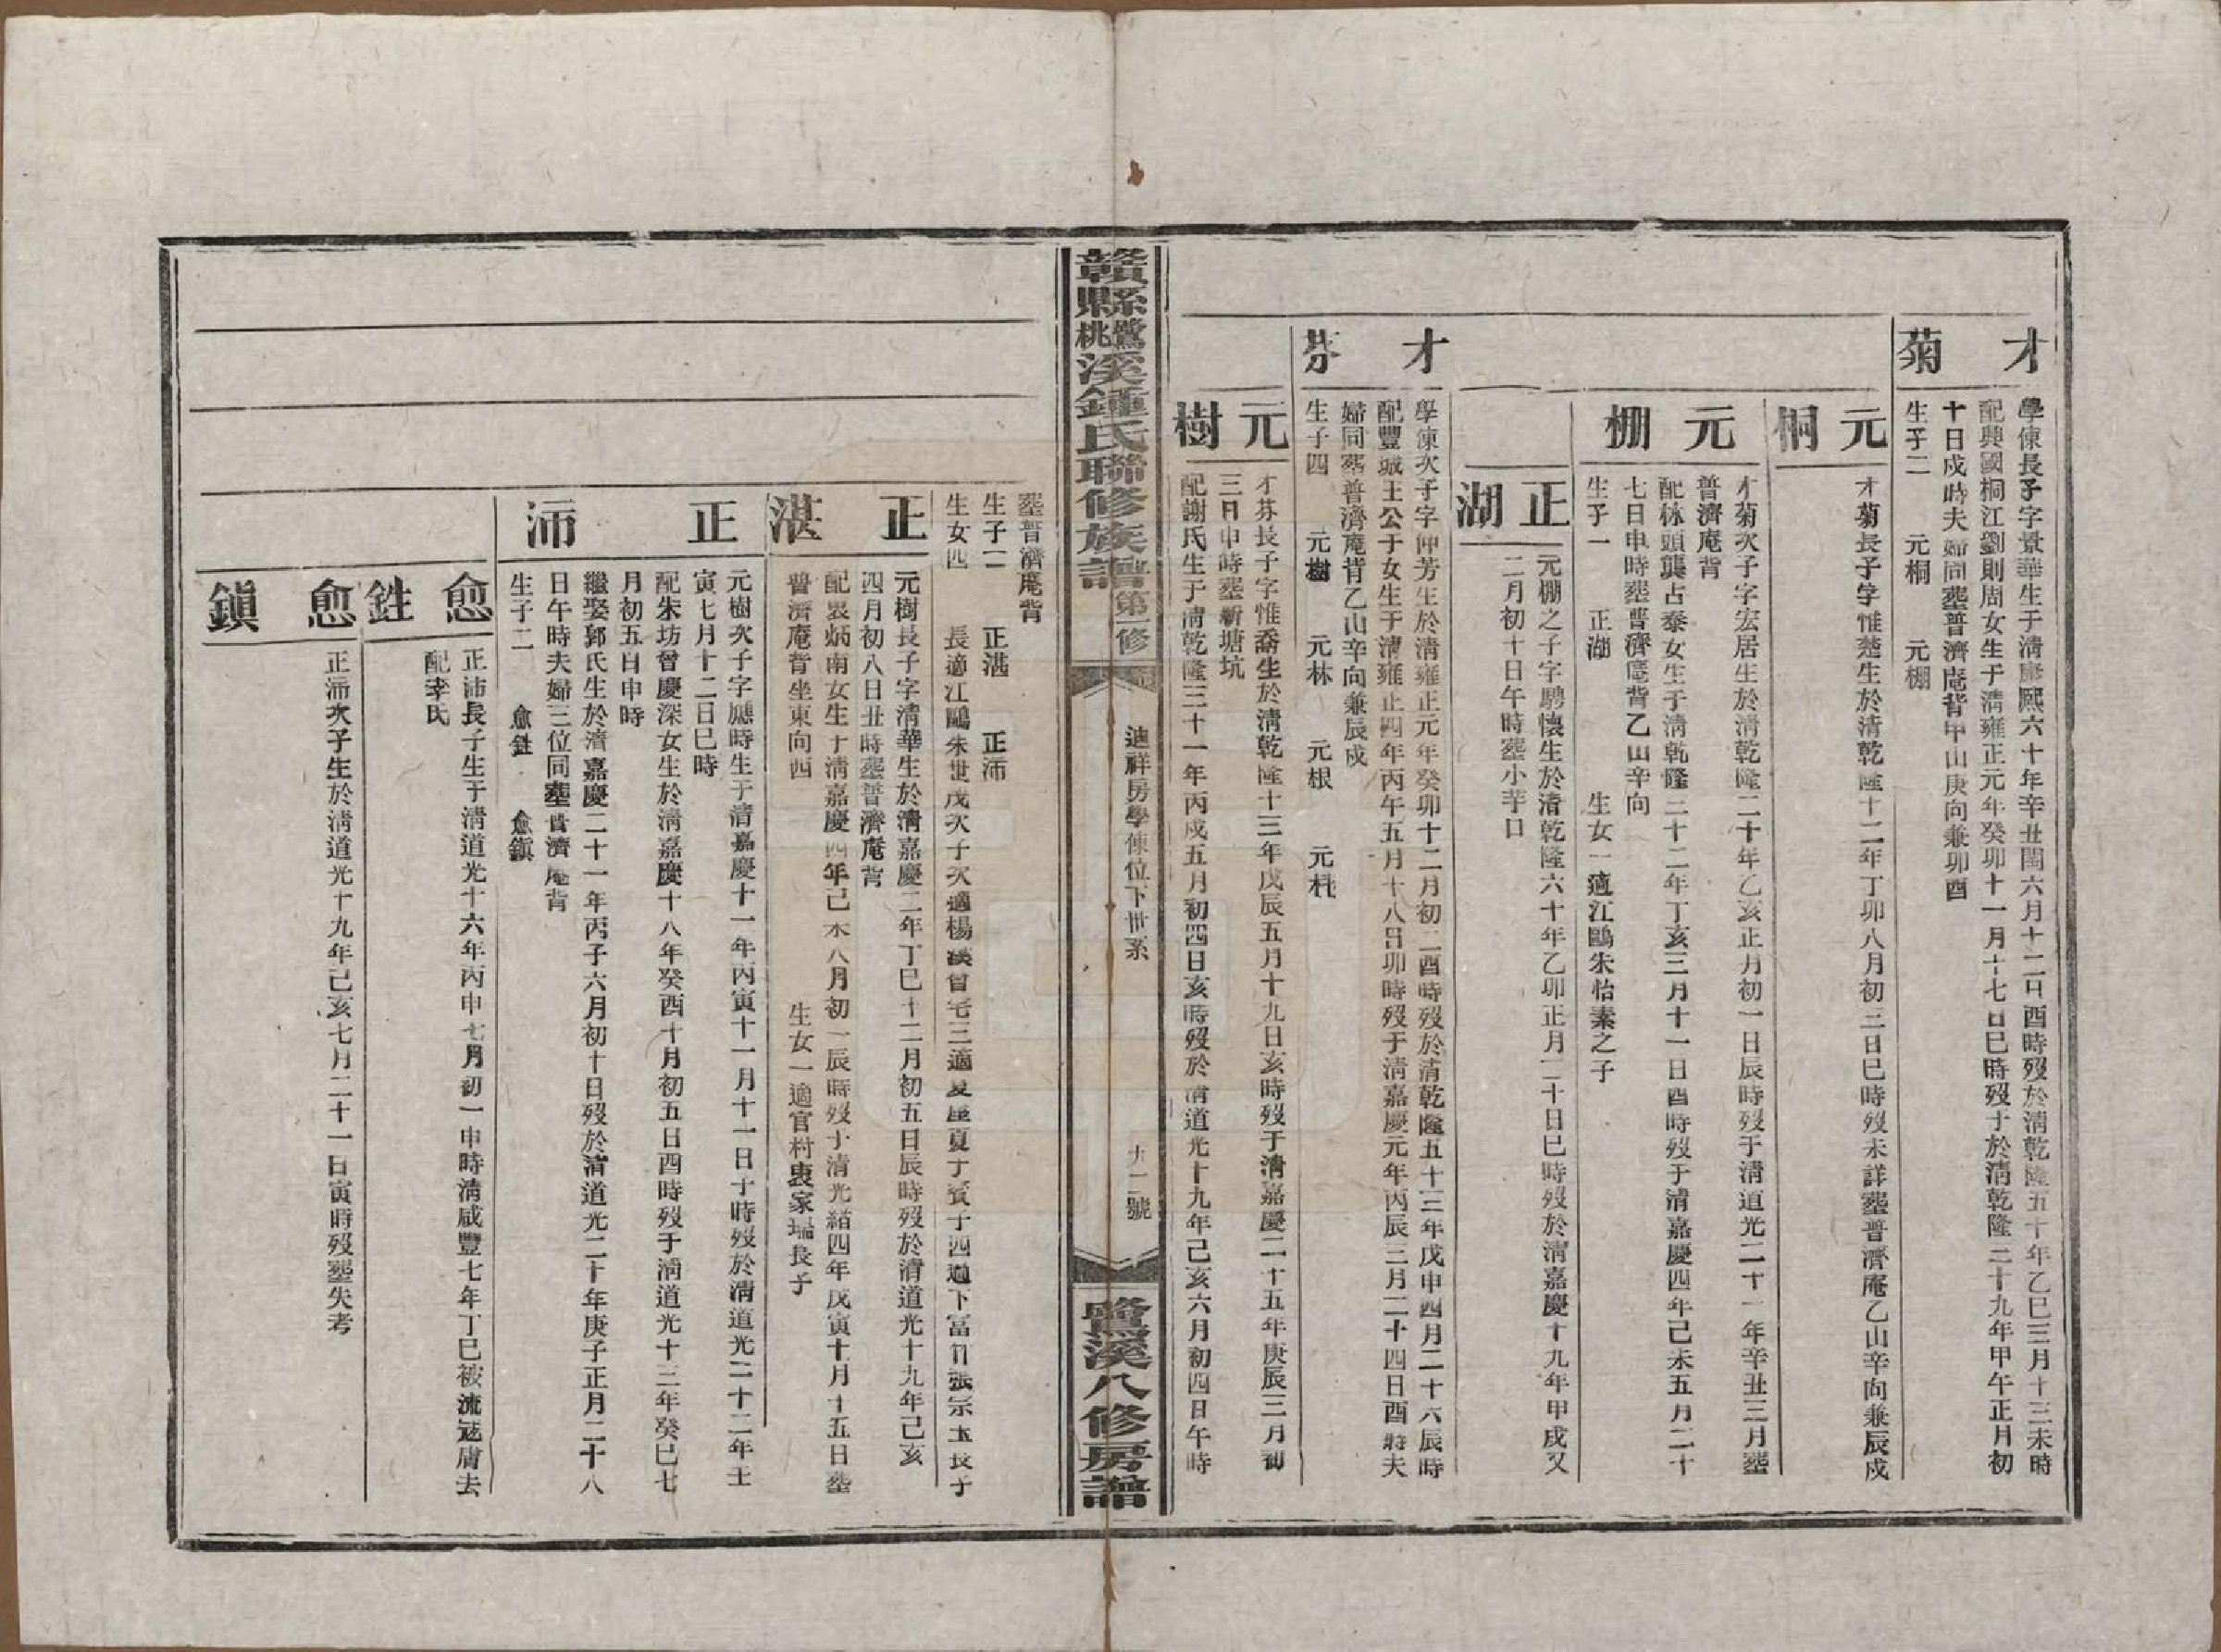 才菊
學倲長子字景華生于清康熙六十年辛丑閏六月十二日酉時歿於清乾隆五十年乙巳三月十三未時
配興國桐江劉則周女生于清雍正元年癸卯十一月十七日巳時歿于於清乾隆二十九年甲午正月初
十日戍時夫婦同塟普濟庵背甲山庚向兼卯酉
生子二　元桐　元棚
元桐
才菊長子字惟楚生於清乾隆十二年丁卯八月初三日巳時歿未詳塟普濟庵乙山辛向兼辰戍
元棚
才菊次子字宏居生於清乾隆二十年乙亥正月初一日辰時歿于清道光二十一年辛丑三月塟
普濟庵背
配林頭龔占泰女生于清乾隆三十二年丁亥三月十一日酉時歿于清嘉慶四年己未五月二十
七日申時塟普濟庵背乙山辛向
生子一　正湖　生女一適江鷗朱怡素之子
正湖
元棚之子字騁懷生於清乾隆六十年乙卯正月二十日巳時歿於清嘉慶十九年甲戌又
二月初十日午時塟小芋口
才芬
學倲次子字仲芳生於清雍正元年癸卯十二月初二酉時歿於清乾隆五十三年戊申四月二十六辰時
配豐城王公于女生于清雍正四年丙午五月十八日卯時歿于清嘉慶元年丙辰三月二十四日酉時夫
婦同塟普濟庵背乙山辛向兼辰戍
生子四　元樹　元林　元根　元枆
元樹
才芬長子字惟喬生於清乾隆十三年戊辰五月十九日亥時歿于清嘉慶二十五年庚辰三月初
三日申時塟新塘坑
配謝氏生于清乾隆三十一年丙戌五月初四日亥時歿於清道光十九年己亥六月初四日午時
贛縣鷺桃溪鍾氏聯修族譜第一修
迪祥房學倲位下世系
九一號
鷺溪八修房譜
塟普濟庵背
生子二　正湛　正沛
生女四　長適江鷗朱世戊次子次適楊溪曾宅三適夏座夏丁賓子四適下富日張宗玉長子
正湛
元樹長子字清華生於清嘉慶二年丁巳十二月初五日辰時歿於清道光十九年己亥
四月初八日丑時塟普濟庵背
配裏炳南女生于清嘉慶四年己未八月初一辰時歿于清光緒四年戊寅十月十五日塟
普濟庵背坐東向西　生女一適官村衷家瑞長子
正沛
元樹次子字應時生于清嘉慶十一年丙寅十一月十一日丁時歿於清道光二十二年壬
寅七月十二日巳時
配朱坊曾慶深女生於清嘉慶十八年癸酉十月初五日四時歿于清道光十三年癸巳七
月初五日申時
繼娶郭氏生於清嘉慶二十一年丙子六月初十日歿於清道光二十年庚子正月二十八
日午時夫婦三位同塟普濟庵背
生子二　愈鉎　愈鎮
愈鉎
正沛長子生于清道光十六年丙申七月初一申時清咸豐七年丁巳被流寇虜去
配李氏
愈鎮
正沛次子生於清道光十九年己亥七月二十一日寅時歿塟失考